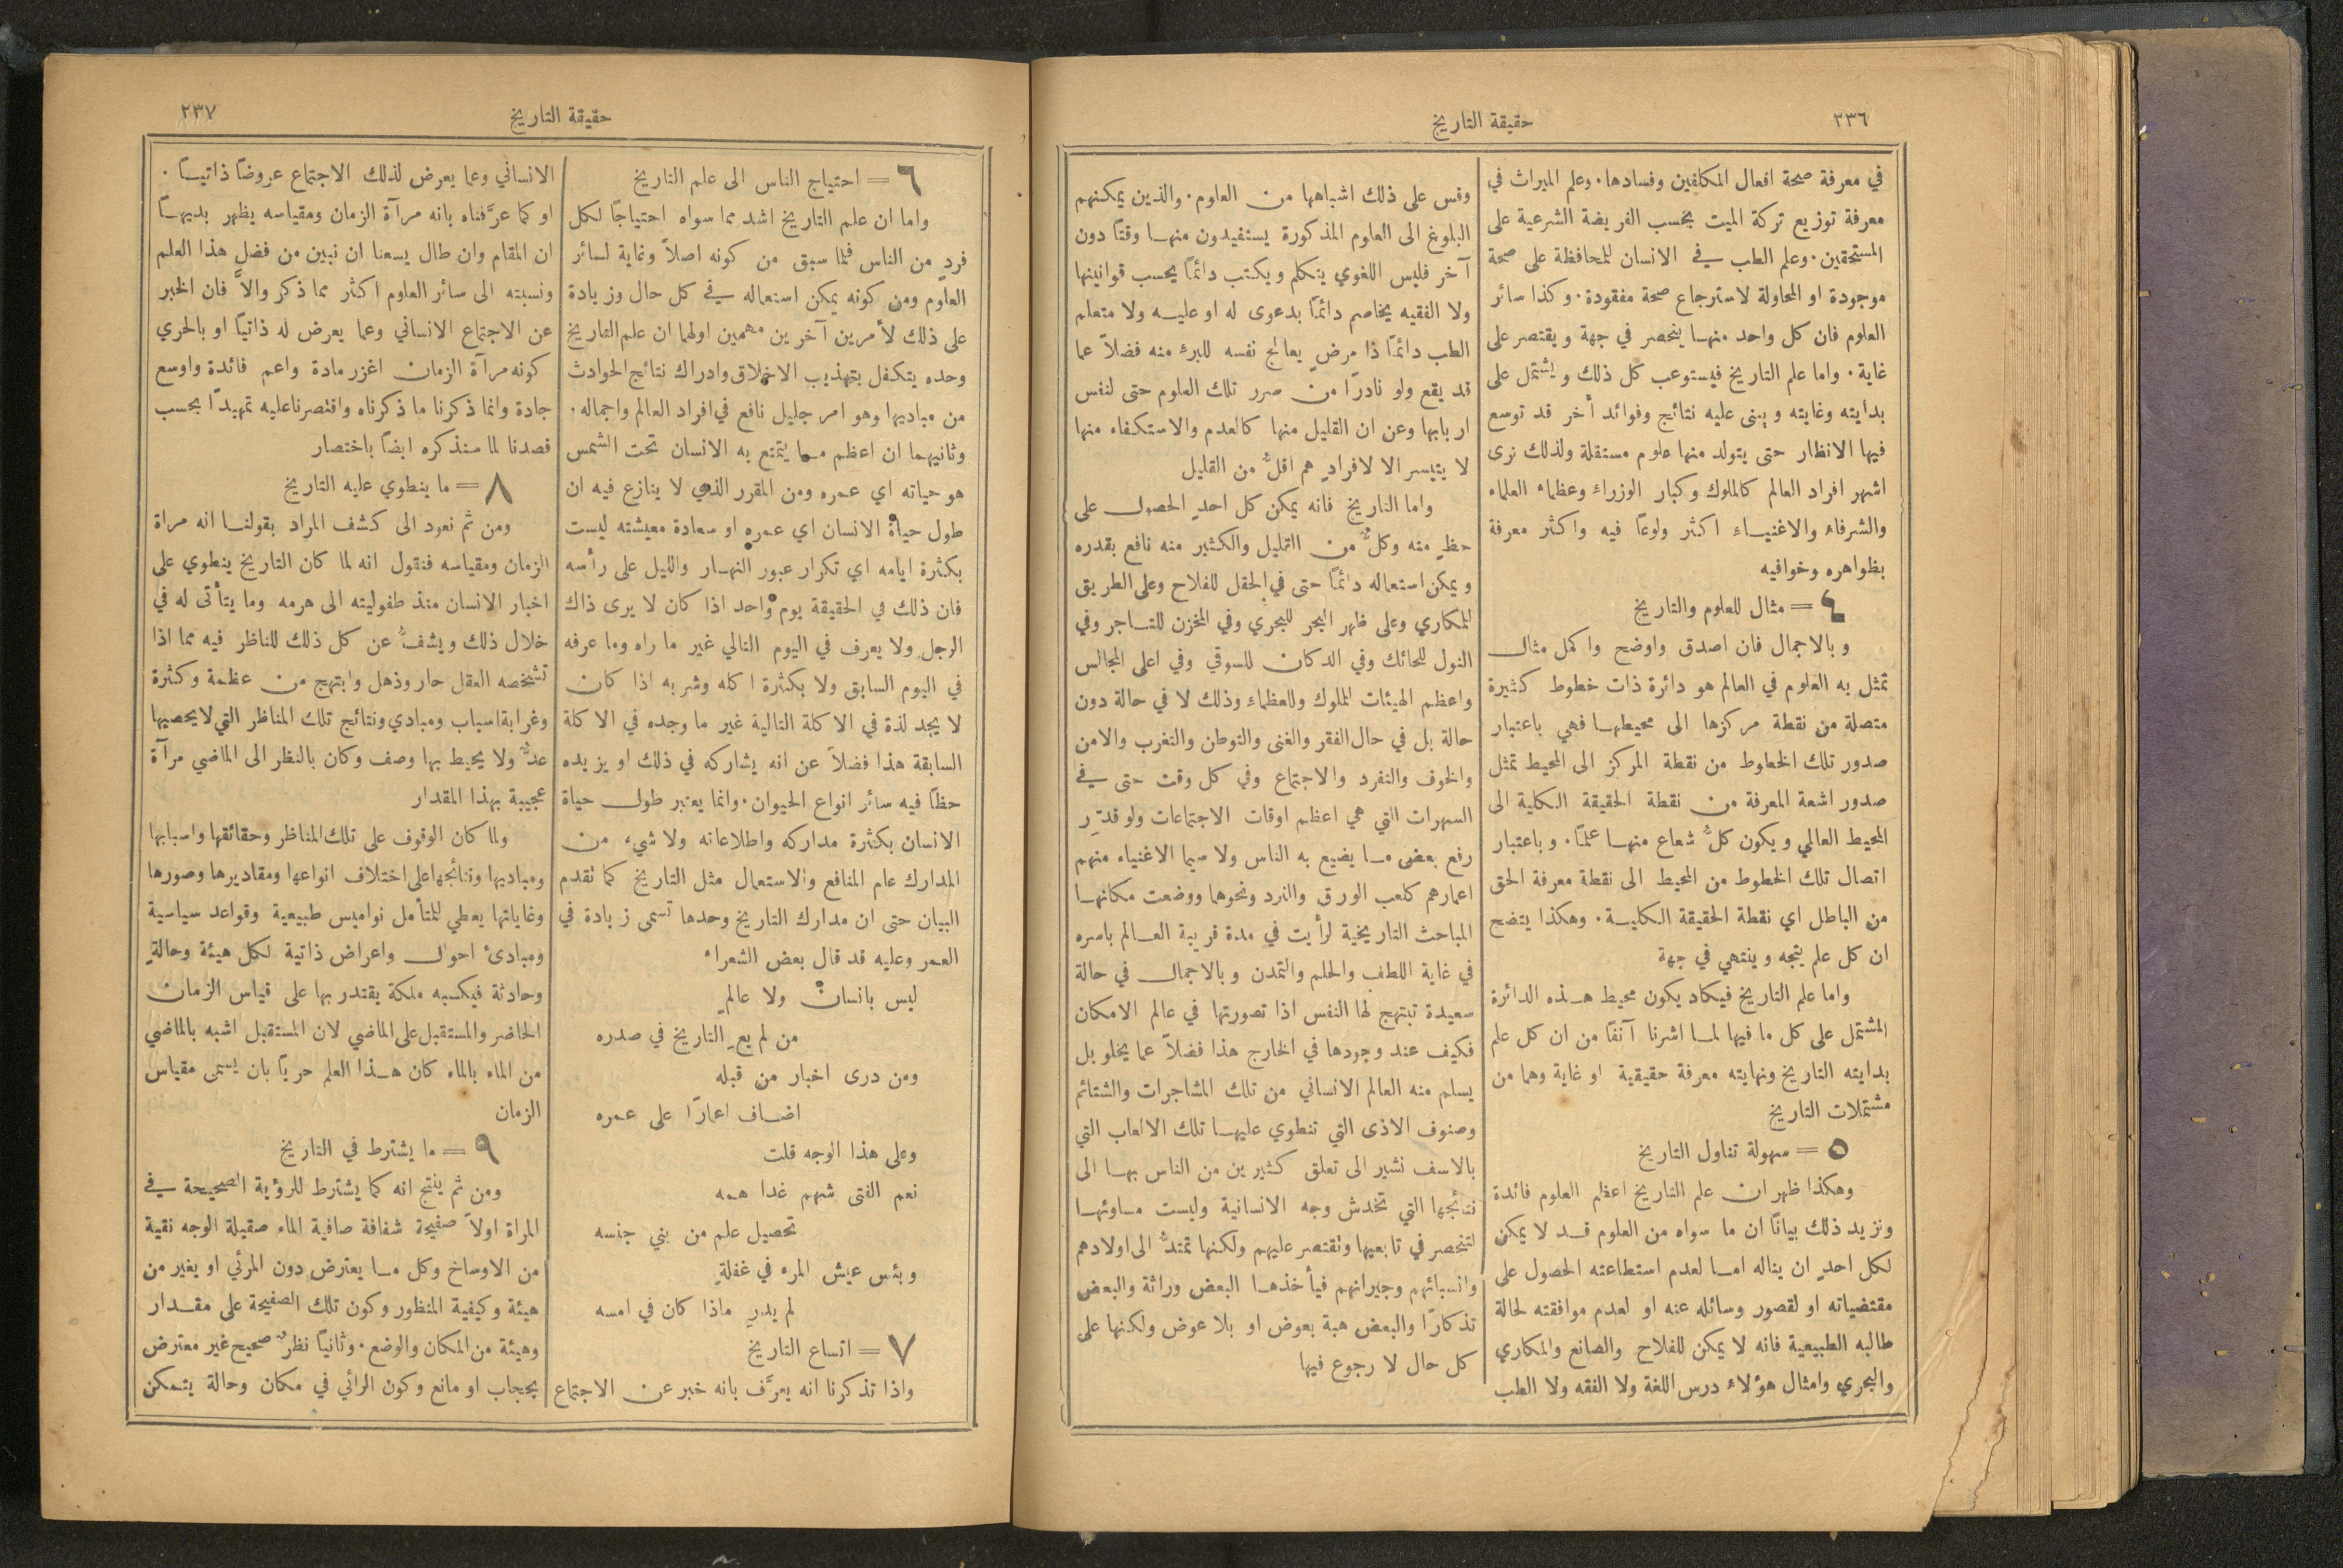 ٢٣٦
حقيقة التاريخ
في معرفة صحة افعال المكلفين وفسادها. وعلم الميراث في
معرفة توزيع تركة الميت بحسب الفريضة الشرعية على
المستحقين. وعلم الطب في الانسان للمحافظة على صحة
موجودة او المحاولة لاسترجاع صحة مفقودة. وكذا سائر
العلوم فان كل واحد منهـا ينحصر في جهة ويقتصر على
غاية. واما علم التاريخ فيستوعب كل ذلك ويشتمل على
بدايته وغايته ويبنى عليه نتائج وفوائد أخر قد توسع
فيها الانظار حتى يتولد منها علوم مستقلة ولذلك نرى
اشهر افراد العالم كالملوك وكبار الوزراء وعظماء العلماء
والشرفاء والاغنيـاء اكثر ولوعًا فيه واكثر معرفة
بظواهره وخوافيه
٤ = مثال للعلوم والتاريخ
وبالاجمال فان اصدق واوضح واكمل مثال
تمثل به العلوم في العالم هو دائرة ذات خطوط كثيرة
متصلة من نقطة مركزها الى محيطهـا فهي باعتبار
صدور تلك الخطوط من نقطة المركز الى المحيط تمثل
صدور اشعة المعرفة من نقطة الحقيقة الكلية الى
المحيط العالمي ويكون كلُّ شعاع منهـا علمًا. وباعتبار
اتصال تلك الخطوط من المحيط الى نقطة معرفة الحق
من الباطل اي نقطة الحقيقة الكليـة. وهكذا يتضح
ان كل علم يتجه وينتهي في جهة
واما علم التاريخ فيكاد يكون محيط هـذه الدائرة
المشتمل على كل ما فيها لمـا اشرنا آنفًا من ان كل علم
بدايته التاريخ ونهايته معرفة حقيقية او غاية وهما من
مشتملات التاريخ
٥ = سهولة تناول التاريخ
وهكذا ظهر ان علم التاريخ اعظم العلوم فائدة
ونزيد ذلك بيانًا ان ما سواه من العلوم قـد لا يمكن
لكل احدٍ ان يناله امـا لعدم استطاعته الحصول على
مقتضياته او لقصور وسائله عنه او لعدم موافقته لحالة
طالبه الطبيعية فانه لا يمكن للفلاح والصانع والمكاري
والبحري وامثال هؤلاء درس اللغة ولا الفقه ولا الطب
وقس على ذلك اشباهها من العلوم. والذين يمكنهم
البلوغ الى العلوم المذكورة يستفيدون منهـا وقتًا دون
آخر فليس اللغوي يتكلم ويكتب دائمًا بحسب قوانينها
ولا الفقيه يخاصم دائمًا بدعوى له او عليـه ولا متعلم
الطب دائمًا ذا مرضٍ يعالج نفسه للبرء منه فضلاً عما
قد يقع ولو نادرًا من ضرر تلك العلوم حتى لنفس
اربابها وعن ان القليل منها كالعدم والاستكفاء منها
لا يتيسر الا لافرادٍ هم اقلُّ من القليل
واما التاريخ فانه يمكن كل احدٍ الحصول على
حظٍ منه وكلٌّ من القليل والكثير منه نافع بقدره
ويمكن استعماله دائمًا حتى في الحقل للفلاح وعلى الطريق
للمكاري وعلى ظهر البحر للبحري وفي المخزن للتـاجر وفي
النول للحائك وفي الدكان للسوقي وفي اعلى المجالس
واعظم الهيئات للملوك وللعظماء وذلك لا في حالة دون
حالة بل في حال الفقر والغنى والتوطن والتغرب والامن
والخوف والتفرد والاجتماع وفي كل وقت حتى في
السهرات التي هي اعظم اوقات الاجتماعات ولو قدّر
رفع بعض مـا يضيع به الناس ولا سيما الاغنياء منهم
اعمارهم كلعب الورق والنرد ونحوهما ووضعت مكانهـا
المباحث التاريخية لرأيت في مدة قريبة العـالم باسره
في غاية اللطف والحلم والتمدن وبالاجمال في حالة
سعيدة تبتهج لها النفس اذا تصورتها في عالم الامكان
فكيف عند وجودها في الخارج هذا فضلاً عما يخلو بل
يسلم منه العالم الانساني من تلك المشاجرات والشتائم
وصنوف الاذى التي تنطوي عليهـا تلك الالعاب التي
بالاسف نشير الى تعلق كثيرين من الناس بهـا الى
نتائجها التي تخدش وجه الانسانية وليست مساوئهـا
لتنحصر في تابعيها وتقتصر عليهم ولكنها تمتدُّ الى اولادهم
وانسبائهم وجيرانهم فيأخذهـا البعض وراثة والبعض
تذكارًا والبعض هبة بعوض او بلا عوض ولكنها على
كل حال لا رجوع فيها
حقيقة التاريخ
٢٣٧
٦ = احتياج الناس الى علم التاريخ
واما ان علم التاريخ اشد مما سواه احتياجًا لكل
فردٍ من الناس فلما سبق من كونه اصلاً وغاية لسائر
العلوم ومن كونه يمكن استعماله في كل حال وزيادة
على ذلك لأمرين آخرين مهمين اولهما ان علم التاريخ
وحده يتكفل بتهذيب الاخلاق وادراك نتائج الحوادث
من مباديها وهو امر جليل نافع في افراد العالم واجماله.
وثانيهما ان اعظم مـا يتمتع به الانسان تحت الشمس
هو حياته اي عمره ومن المقرر الذي لا ينازع فيه ان
طول حياة الانسان اي عمره او سعادة معيشته ليست
بكثرة ايامه اي تكرار عبور النهـار والليل على رأسه
فان ذلك في الحقيقة يوم واحد اذا كان لا يرى ذاك
الرجل ولا يعرف في اليوم التالي غير ما راه وما عرفه
في اليوم السابق ولا بكثرة اكله وشربه اذا كان
لا يجد لذة في الاكلة التالية غير ما وجده في الاكلة
السابقة هذا فضلاً عن انه يشاركه في ذلك او يزيده
حظًا فيه سائر انواع الحيوان. وانما يعتبر طول حياة
الانسان بكثرة مداركه واطلاعاته ولا شيء من
المدارك عام المنافع والاستعمال مثل التاريخ كما تقدم
البيان حتى ان مدارك التاريخ وحدها تسمى زيادة في
العمر وعليه قد قال بعض الشعراء
ليس بانسان ولا عالمٍ
من لم يعِ التاريخ في صدره
ومن درى اخبار من قبله
اضـاف اعمارًا على عمره
وعلى هذا الوجه قلت
نعم الفتى شهم غدا همه
تحصيل علم من بني جنسه
وبئس عيش المرء في غفلةٍ
لم يدرِ ماذا كان في امسه
٧ = اتساع التاريخ
واذا تذكرنا انه يعرَّف بانه خبر عن الاجتماع
الانساني وعما يعرض لذلك الاجتماع عروضًا ذاتيـًا.
او كما عرَّفناه بانه مرآة الزمان ومقياسه يظهر بديهـًا
ان المقام وان طال يسعنا ان نبين من فضل هذا العلم
ونسبته الى سائر العلوم اكثر مما ذكر والاَّ فان الخبر
عن الاجتماع الانساني وعما يعرض له ذاتيًا او بالحري
كونه مرآة الزمان اغزر مادة واعم فائدة واوسع
جادة وانما ذكرنا ما ذكرناه واقتصرنا عليه تمهيدًا بحسب
قصدنا لما سنذكره ايضًا باختصار
٨ = ما ينطوي عليه التاريخ
ومن ثم نعود الى كشف المراد بقولنـا انه مراة
الزمان ومقياسه فنقول انه لما كان التاريخ ينطوي على
اخبار الانسان منذ طفوليته الى هرمه وما يتأتى له في
خلال ذلك ويشفُّ عن كل ذلك للناظر فيه مما اذا
تشخصه العقل حار وذهل وابتهج من عظمة وكثرة
وغرابة اسباب ومبادي ونتائج تلك المناظر التي لا يحصيها
عدٌّ ولا يحيط بها وصف وكان بالنظر الى الماضي مرآة
عجيبة بهذا المقدار
ولما كان الوقوف على تلك المناظر وحقائقها واسبابها
ومباديها ونتائجها على اختلاف انواعها ومقاديرها وصورها
وغاياتها يعطي للمتأمل نواميس طبيعية وقواعد سياسية
ومبادئ احوال واعراض ذاتية لكل هيئة وحالةٍ
وحادثة فيكسبه ملكة يقتدر بها على قياس الزمان
الحاضر والمستقبل على الماضي لان المستقبل اشبه بالماضي
من الماء بالماء كان هـذا العلم حريًا بان يسمى مقياس
الزمان
٩ = ما يشترط في التاريخ
ومن ثم ينتج انه كما يشترط للرؤية الصحيحة في
المراة اولاً صفيحة شفافة صافية الماء صقيلة الوجه نقية
من الاوساخ وكل مـا يعترض دون المرئي او يغير من
هيئة وكيفية المنظور وكون تلك الصفيحة على مقـدار
وهيئة من المكان والوضع. وثانيًا نظرٌ صحيح غير معترض
بحجاب او مانع وكون الرائي في مكان وحالة يتمكن